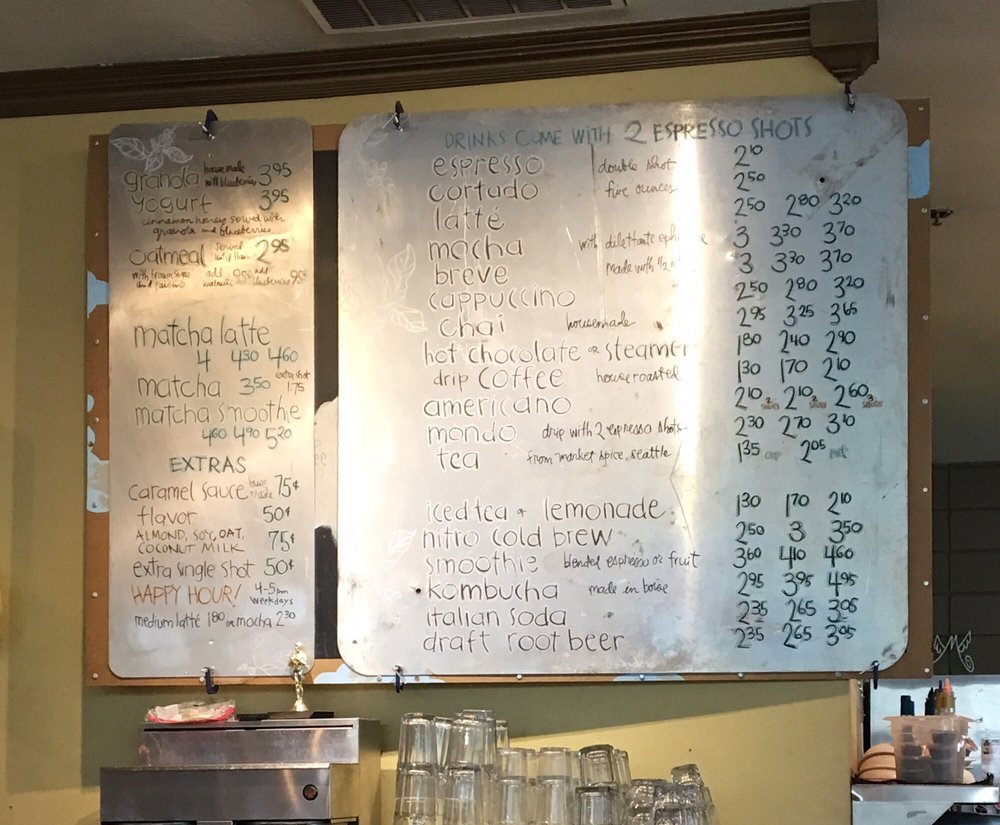 granola house made with blueberries 3.95
yogurt 3.95
cinnamon honey served with
granola and blueberries
oatmeal served 2.95
with brown sugar add 95¢ add 95¢
and walnuts blueberries
matcha latte
4 4.30 4.60
matcha 3.50 extra shot 1.75
matcha smoothie
4.60 4.90 5.20
EXTRAS
caramel sauce house made 75¢
flavor 50¢
ALMOND, SOY, OAT,
COCONUT MILK 75¢
extra single shot 50¢
HAPPY HOUR! 4-5pm weekdays
medium latté 1.80 or mocha 2.30
DRINKS COME WITH 2 ESPRESSO SHOTS
espresso double shot 2.10
cortado five ounces 2.50
latté 2.50 2.80 3.20
mocha with dilettante 3 3.30 3.70
breve made with 3 3.30 3.70
cappuccino 2.50 2.80 3.20
chai housemade 2.95 3.25 3.65
hot chocolate or steamer 1.80 2.40 2.90
drip coffee house roasted 1.30 1.70 2.10
americano 2.10 2 shots 2.10 2 shots 2.60 3 shots
mondo drip with 2 espresso shots 2.30 2.70 3.10
tea from market spice, seattle 1.35 cup 2.05 pot
iced tea + lemonade 1.30 1.70 2.10
nitro cold brew 2.50 3 3.50
smoothie blended espresso or fruit 3.60 4.10 4.60
kombucha made in boise 2.95 3.95 4.95
italian soda 2.35 2.65 3.05
draft root beer 2.35 2.65 3.05